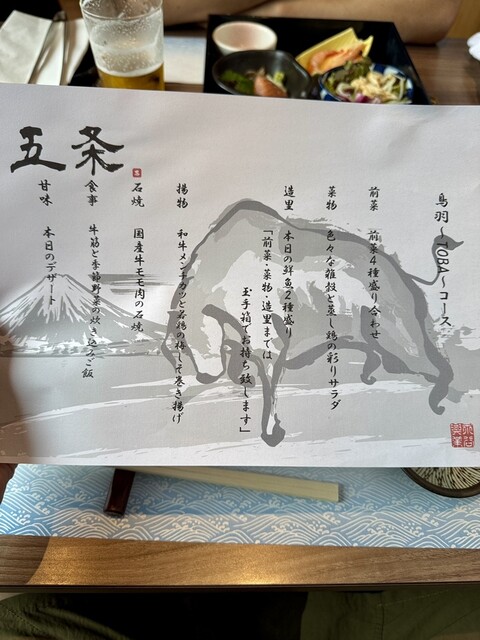 鳥羽～TOBA～コース
前菜 前菜4種盛り合わせ
菜物 色々な雑穀と蒸し鶏の彩りサラダ
造里 本日の鮮魚2種盛り
「前菜・菜物・造里までは
玉手箱でお持ち致します」
揚物 和牛メンチカツと若鶏の梅しそ巻き揚げ
石焼 国産牛モモ肉の石焼
食事 牛筋と季節野菜の炊き込みご飯
甘味 本日のデザート
五条